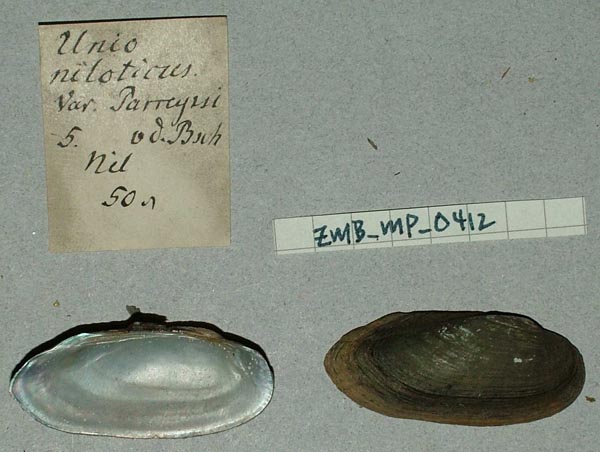 Unio
niloticus.
Var. Parreyssi
5. v d. Bsch
Nil
50
ZMB_MP_0412